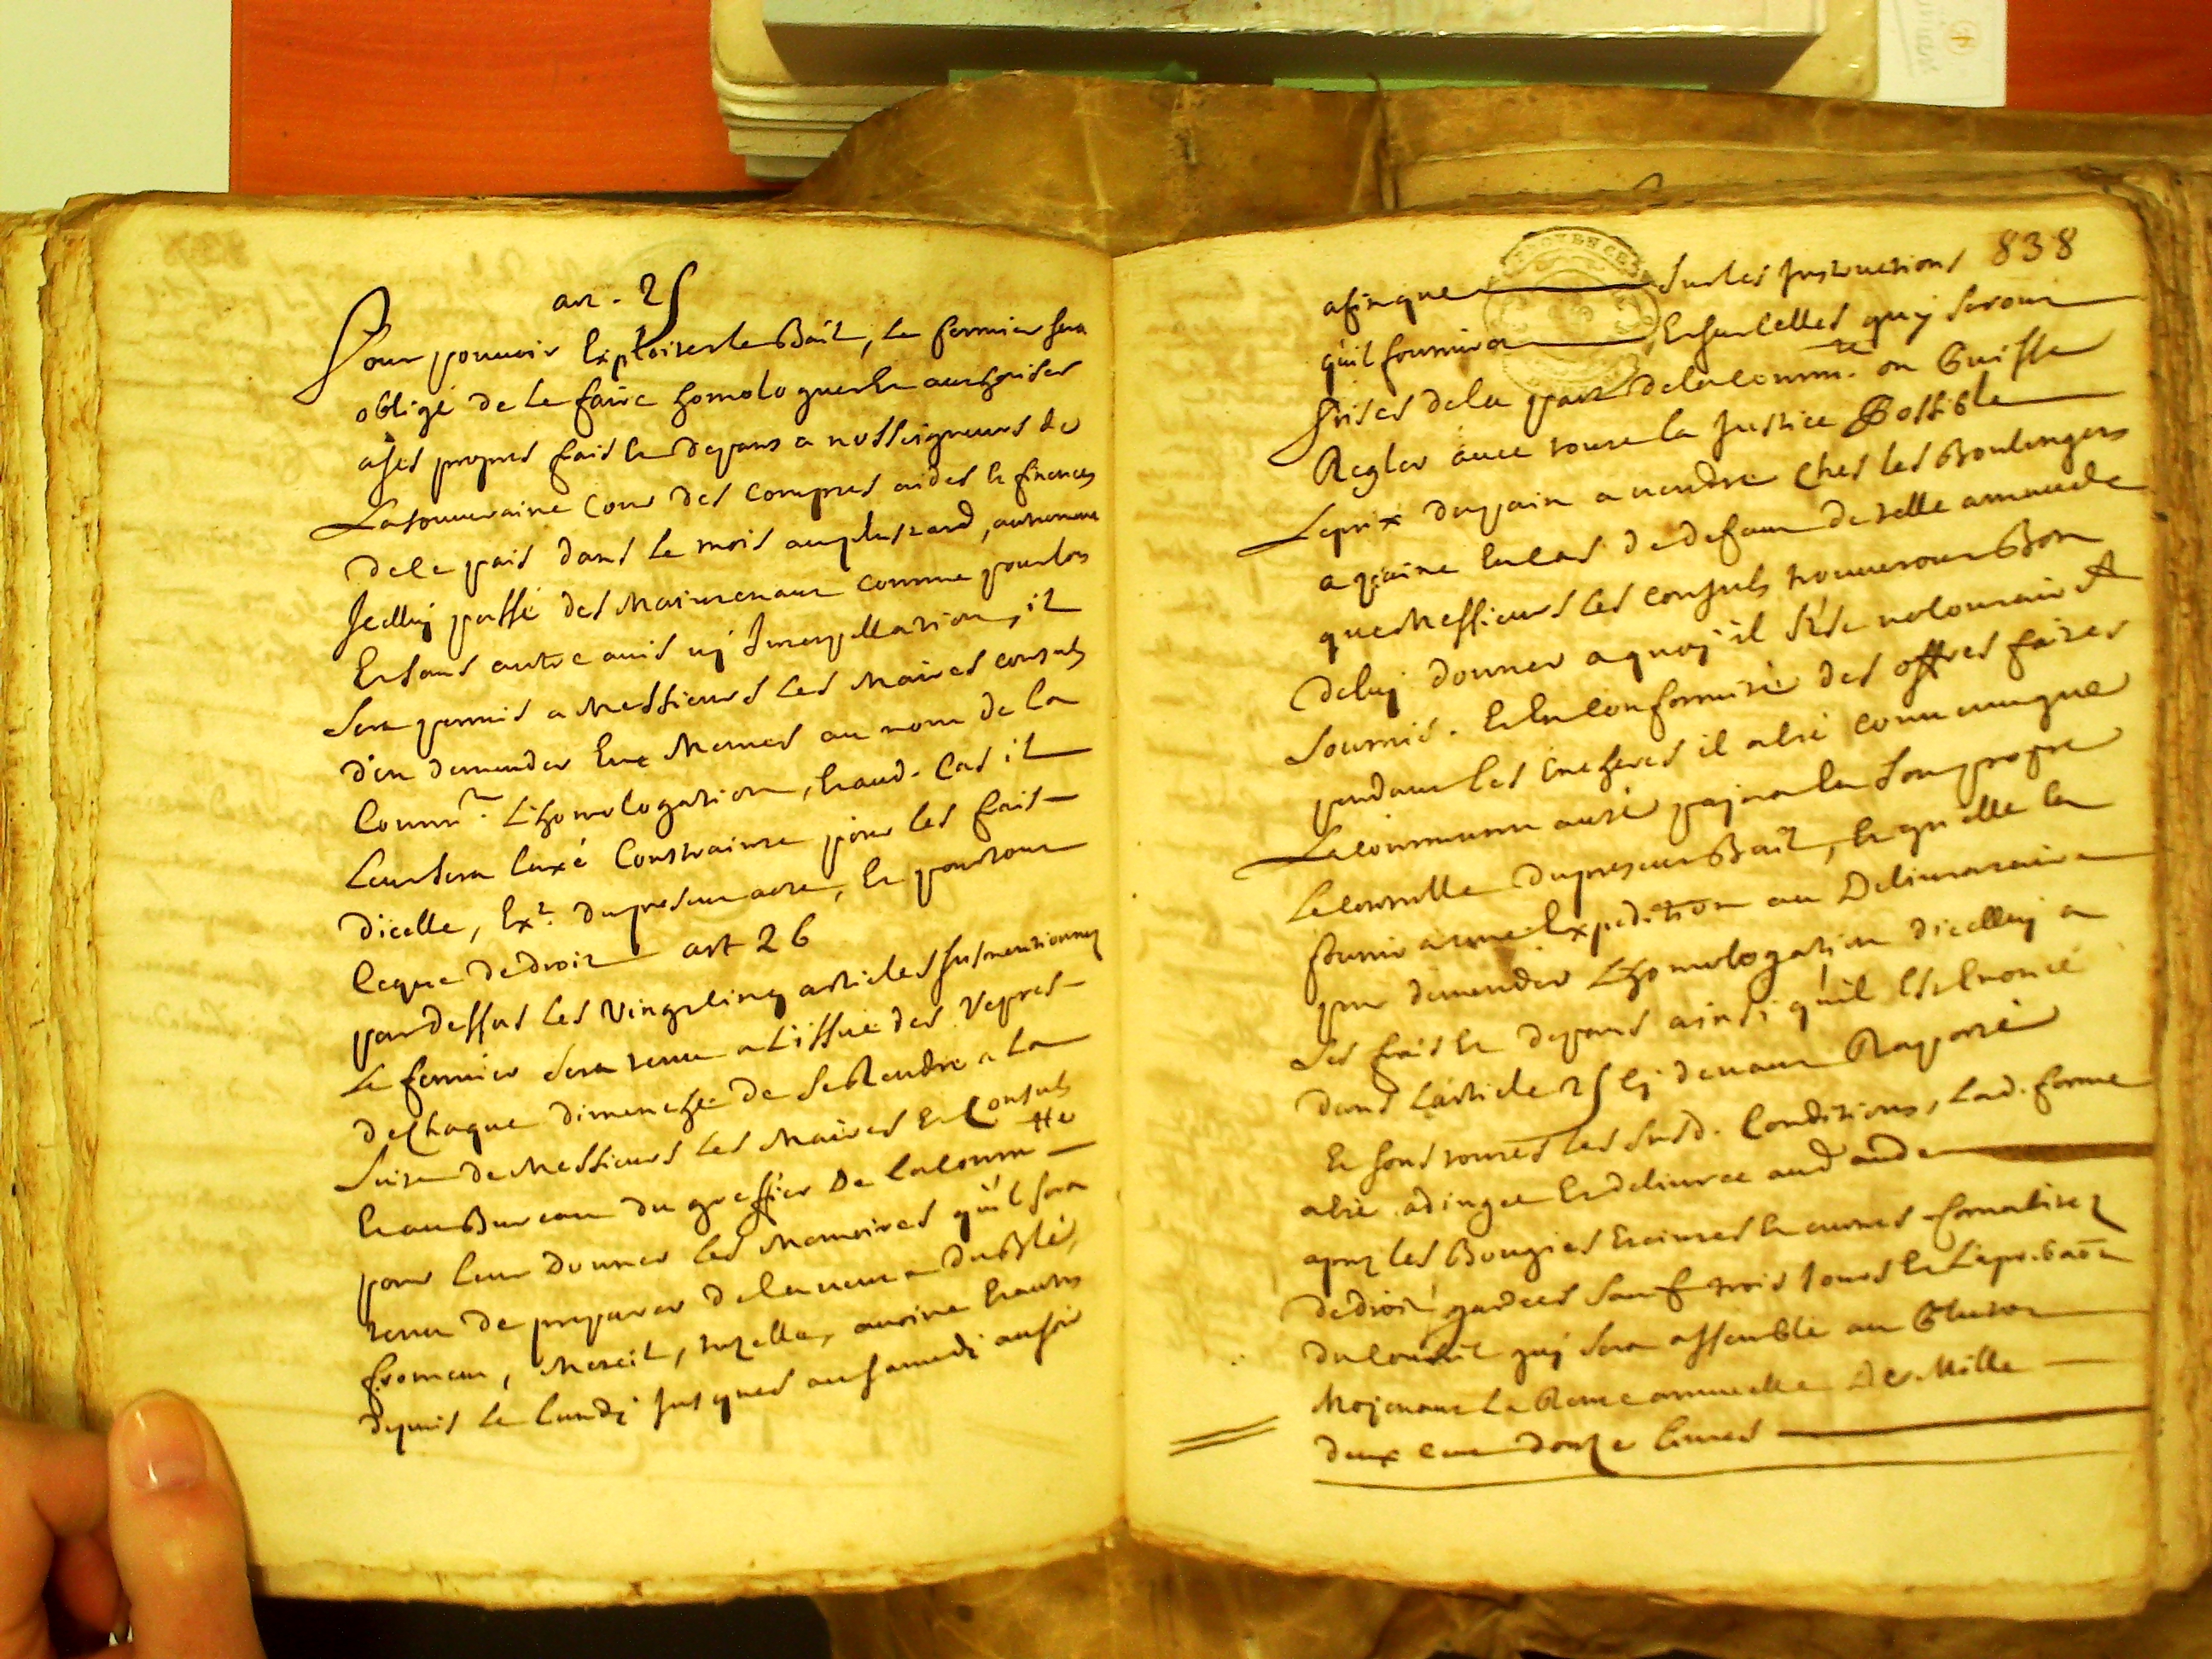 art. 25
Pour pouvoir Exploiter le Bail, le fermier sera
obligé de le faire homologuer Et authoriser
a ses propres frais Et depans a nosseigneurs de
La souveraine Cour des Comptes aides Et finences
de ce pais dans le mois au plus tard, autrement
Jcelluy passé des Maintenant comme pour lors
Et sans autre avis ny Interpellation, il
sera permis a Messieurs les Maires consuls
d'en demander Eux Memes au nom de la
Commté. L'homologation, Et aud. Cas il
Leur sera laxé Contrainte pour les frais
dicelle, Ex.on du present acte, Et pourtout
Ce que de droit art 26
par dessus les Vingt Cinq articles susmentionnez
Le fermier sera tenu a L'issue des Vepres
de Chaque dimenche de se Rendre a La
suite de Messieurs les Maires Et Consuls
Et au Bureau du greffier De la Comm.té
pour leur Donner les Memoires qu'il sera
tenu de preparer de la vente du Blé,
froment, Meteil, tuzelle, avoine Et autres
depuis le lundi Jusques au samedi au soir
838
afin que sur les Instructions
quil fournira Et sur Celles quy seront
Prises de la part de la Comm.té on Puisse
Regler avec toute la Justice Possible
Le prix du pain a vendre Ches les Boulengers
a paine En Cas de defaut de telle amende
que Messieurs les consuls trouveront Bon
de luy donner a quoy il s'est volontairt.
soumis. Et En Conformité des offres faites
pendant les Encheres il a été convenu que
La communauté payera En son propre
Le Controlle du present Bail, Et qu'elle En
fournira une Expedition au Delivrataire
pour demender L'homologation dicelluy a
ses frais Et depans ainsi qu'il Est Enoncé
dans L'article 25 Cy devant Raporté
Et sous toutes les susd. Conditions, Lad. ferme
a été adjugee Et delivree aud
apres les Bougies Eteintes Et autres formalitez
de droit gardees sauf trois Jours Et L'aprobaon
du Conseil quy sera assemblé au Plutot
Mojenant La Rente annuelle De Mille
deux cent douze livres